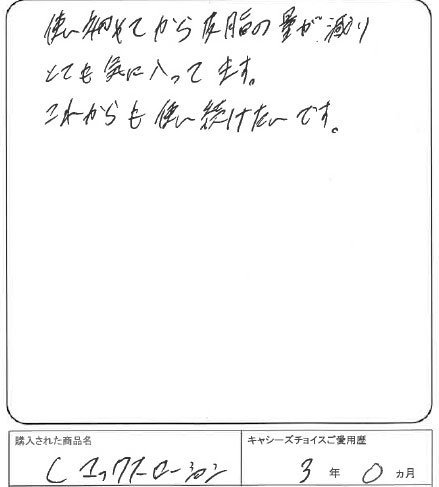 使い始めてから皮脂の量が減り
とても気に入ってます。
これからも使い続けたいです。
購入された商品名
キャシーズチョイスご愛用歴
C マックスローション
3 年 0 ヵ月